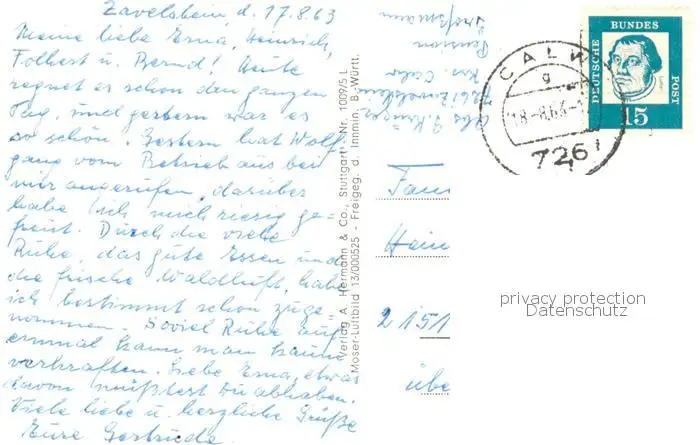 Zavelstein, d. 17.8.63
Meine liebe Erna, Heinrich,
Folkert u. Bernd! Heute
regnet es schon den ganzen
Tag, und gestern war es
so schön. Gestern hat Wolf
gang vom Betrieb aus bei
mir angerufen, darüber
habe ich mich riesig ge-
freut. Durch die viele
Ruhe, das gute Essen und
die frische Waldluft, habe
ich bestimmt schon zuge
nommen. Soviel Ruhe auf
einmal kann man kaum
verkraften. Liebe Erna, etwas
davon müßtest Du abhaben.
Viele liebe u. herzliche Grüße
Eure Gertrude
Verlag A. Hermann & Co., Stuttgart · Nr. 1009/5 L
Moser-Luftbild 13/000525 - Freigeg. d. Innmin. B.-Württ.
Abs.
Zavelstein
Krs. Calw
Pension
DEUTSCHE
BUNDES
POST
15
CALW
g
18.-8.63.-1
7261
Fam
Hein
2151
übe
privacy protection
Datenschutz